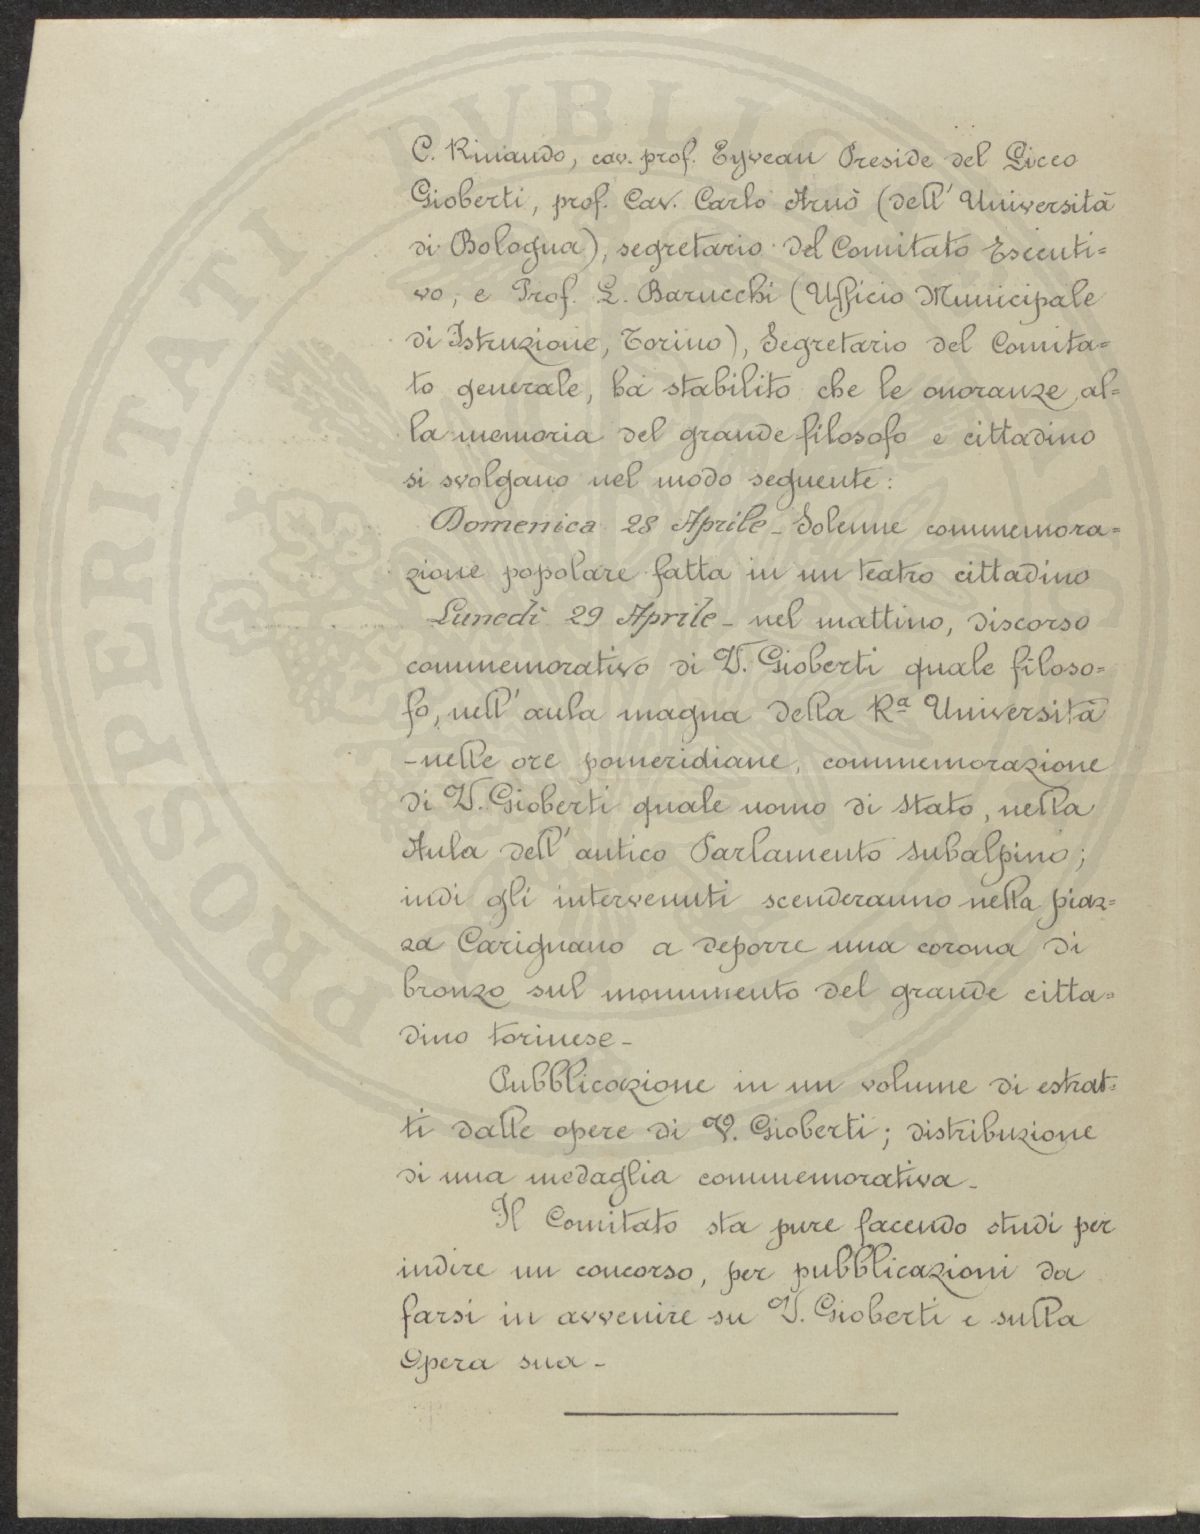 C. Rinaudo, cav. prof. Eyveau Preside del Liceo
Gioberti, prof. Cav. Carlo Arnò (dell'Università
di Bologna), segretario del Comitato Esecuti=
vo, e Prof. L. Barucchi (Ufficio Municipale
di Istruzione, Torino), Segretario del Comita=
to generale, ha stabilito che le onoranze al=
la memoria del grande filosofo e cittadino
si svolgano nel modo seguente:
Domenica 28 Aprile - Solenne commemora=
zione popolare fatta in un teatro cittadino
Lunedì 29 Aprile - nel mattino, discorso
commemorativo di V. Gioberti quale filoso=
fo, nell'aula magna della Rª Università
- nelle ore pomeridiane, commemorazione
di V. Gioberti quale uomo di Stato, nella
Aula dell'antico Parlamento Subalpino;
indi gli intervenuti scenderanno nella piaz=
za Carignano a deporre una corona di
bronzo sul monumento del grande citta=
dino torinese -
Pubblicazione in un volume di estrat=
ti dalle opere di V. Gioberti; distribuzione
di una medaglia commemorativa -
Il Comitato sta pure facendo studi per
indire un concorso, per pubblicazioni da
farsi in avvenire su V. Gioberti e sulla
Opera sua -
PROSPERITATI PVBLIC